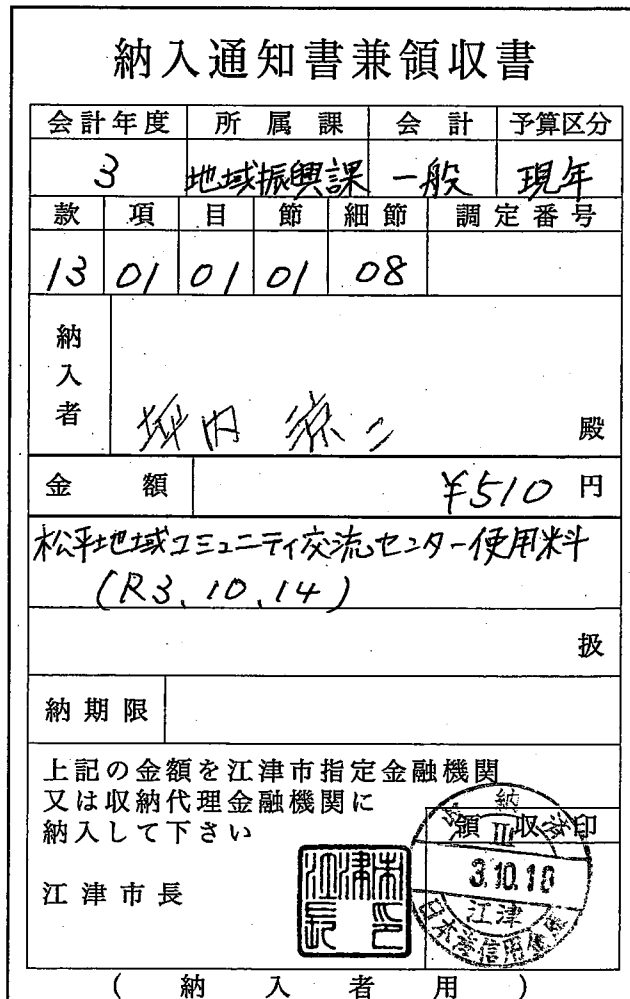 納入通知書兼領収書
会計年度 所属課 会計 予算区分
3 地域振興課 一般 現年
款 項 目 節 細節 調定番号
13 01 01 01 08
納入者
坪内 涼二 殿
金額 ¥510 円
松平地域コミュニティ交流センター使用料
(R3.10.14)
扱
納期限
上記の金額を江津市指定金融機関
又は収納代理金融機関に
納入して下さい
領収印
江津市長
江津市長印
3.10.18
江津
日本海信用金庫
(納入者用)